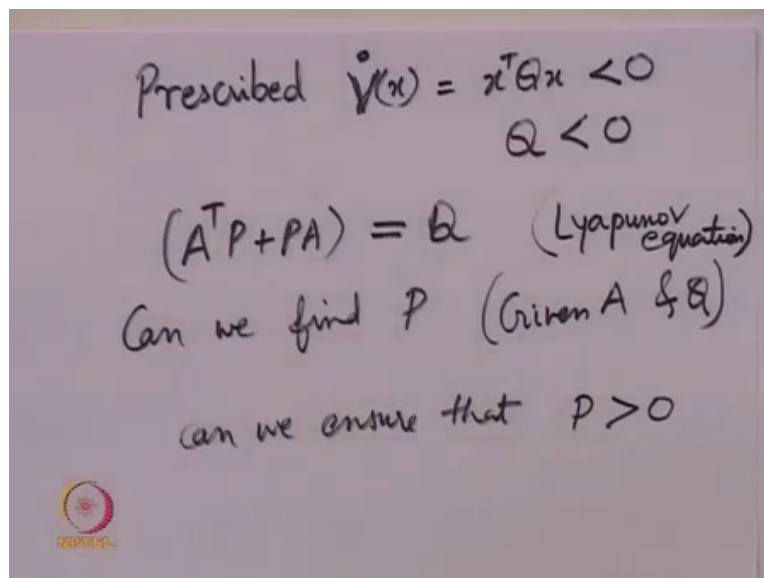 Prescribed V̇(x) = xᵀQx < 0
Q < 0
(AᵀP + PA) = Q (Lyapunov equation)
Can we find P (Given A & Q)
can we ensure that P > 0
NPTEL